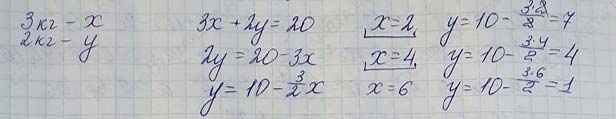 3кг – x    3x + 2y = 20    x = 2,    y = 10 - 3·2/2 = 7
2кг – y    2y = 20 - 3x    x = 4,    y = 10 - 3·4/2 = 4
y = 10 - 3/2 x    x = 6    y = 10 - 3·6/2 = 1